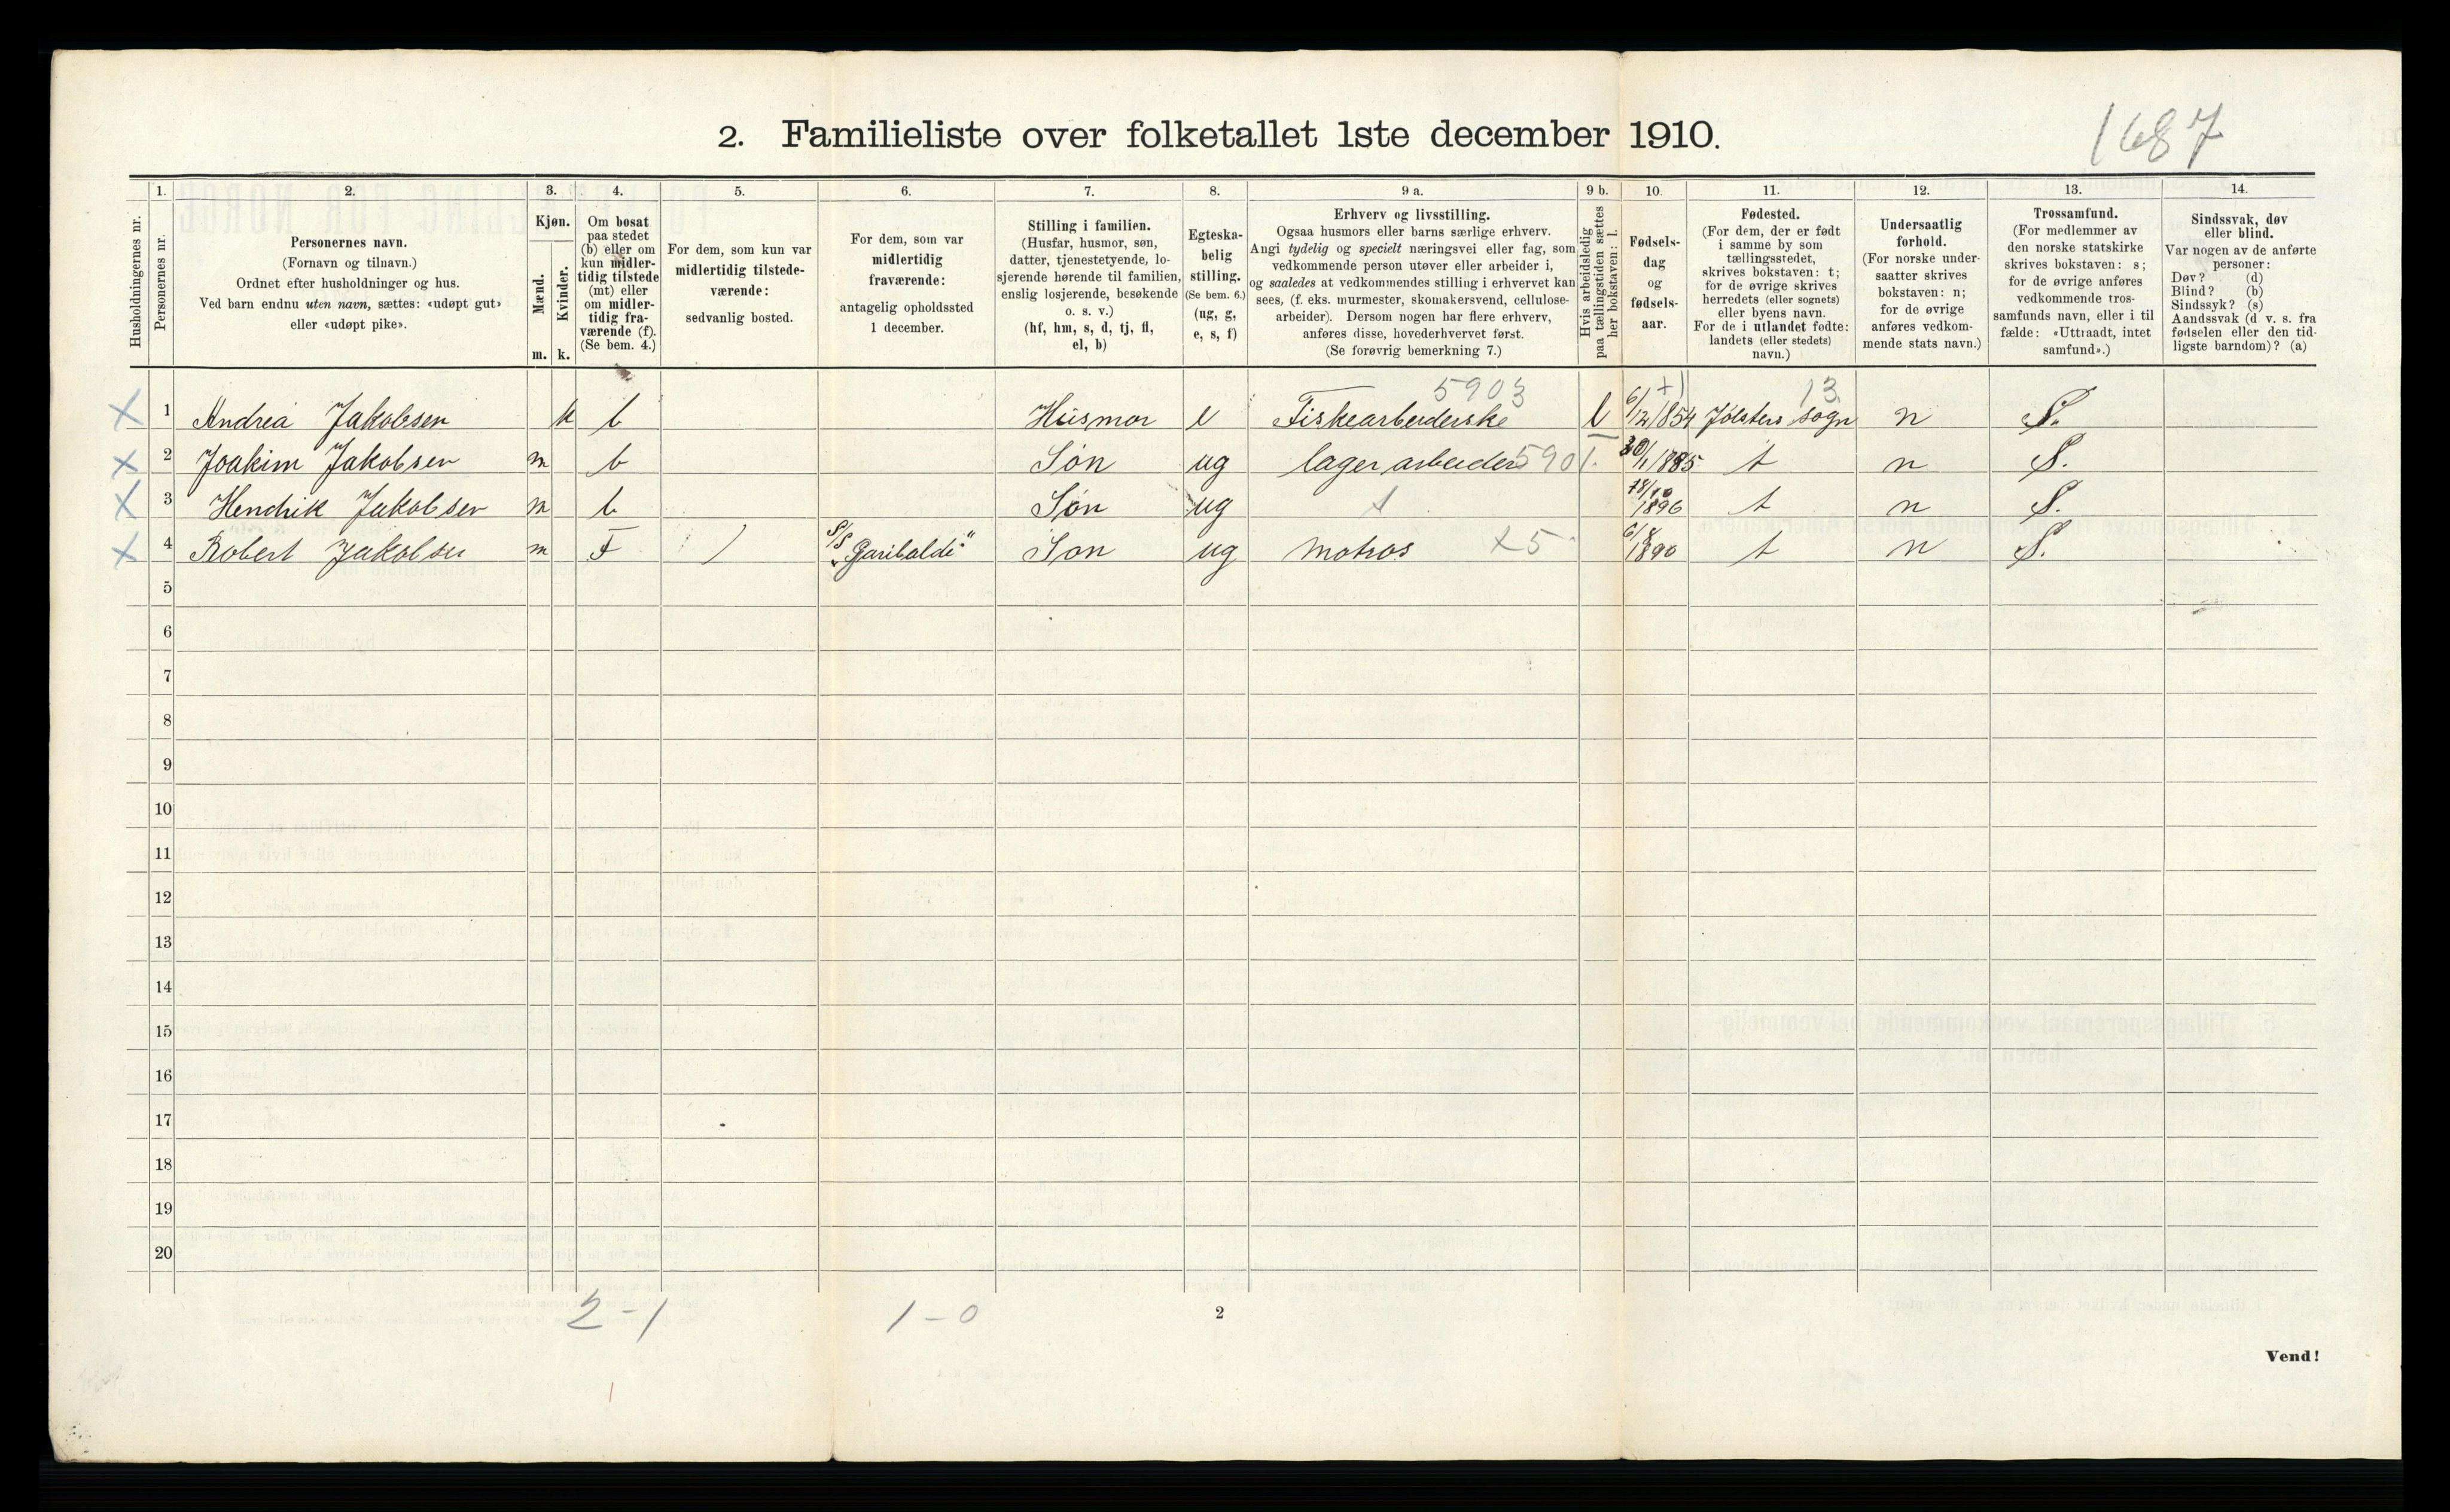 1687
2. Familieliste over folketallet 1ste december 1910.
1. 2. 3. 4. 5. 6. 7. 8. 9 a. 9 b. 10. 11. 12. 13. 14.
Husholdningernes nr.
Personernes nr.
Personernes navn.
(Fornavn og tilnavn.)
Ordnet efter husholdninger og hus.
Ved barn endnu uten navn, sættes: «udøpt gut»
eller «udøpt pike».
Kjøn.
Mænd.
Kvinder.
m. k.
Om bosat
paa stedet
(b) eller om
kun midler-
tidig tilstede
(mt) eller
om midler-
tidig fra-
værende (f).
(Se bem. 4.)
For dem, som kun var
midlertidig tilstede-
værende:
sedvanlig bosted.
For dem, som var
midlertidig
fraværende:
antagelig opholdssted
1 december.
Stilling i familien.
(Husfar, husmor, søn,
datter, tjenestetyende, lo-
sjerende hørende til familien,
enslig losjerende, besøkende
o. s. v.)
(hf, hm, s, d, tj, fl,
el, b)
Egteska-
belig
stilling.
(Se bem. 6.)
(ug, g,
e, s, f)
Erhverv og livsstilling.
Ogsaa husmors eller barns særlige erhverv.
Angi tydelig og specielt næringsvei eller fag, som
vedkommende person utøver eller arbeider i,
og saaledes at vedkommendes stilling i erhvervet kan
sees, (f. eks. murmester, skomakersvend, cellulose-
arbeider). Dersom nogen har flere erhverv,
anføres disse, hovederhvervet først.
(Se forøvrig bemerkning 7.)
Hvis arbeidsledig
paa tællingstiden sættes
her bokstaven: l.
Fødsels-
dag
og
fødsels-
aar.
Fødested.
(For dem, der er født
i samme by som
tællingsstedet,
skrives bokstaven: t;
for de øvrige skrives
herredets (eller sognets)
eller byens navn.
For de i utlandet fødte:
landets (eller stedets)
navn.)
Undersaatlig
forhold.
(For norske under-
saatter skrives
bokstaven: n;
for de øvrige
anføres vedkom-
mende stats navn.)
Trossamfund.
(For medlemmer av
den norske statskirke
skrives bokstaven: s;
for de øvrige anføres
vedkommende tros-
samfunds navn, eller i til
fælde: «Uttraadt, intet
samfund».)
Sindssvak, døv
eller blind.
Var nogen av de anførte
personer:
Døv? (d)
Blind? (b)
Sindssyk? (s)
Aandssvak (d v. s. fra
fødselen eller den tid-
ligste barndom)? (a)
5903 13
X 1 Andrea Jakobsen k b Husmor e Fiskearbeiderske l 6/12 1854 Jølsters sogn n S.
X 2 Joakim Jakobsen m b Søn ug lagerarbeider 5901. 30/1 1885 t n S.
X 3 Hendrik Jakobsen m b Søn ug 18/10 1896 t n S.
X 4 Robert Jakobsen m F S/S „Garibaldi“ Søn ug Matros x5 6/8 1890 t n S.
5
6
7
8
9
10
11
12
13
14
15
16
17
18
19
20
2-1 1-0 2
Vend!